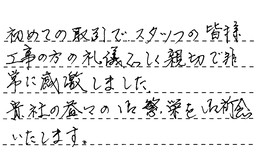 初めての取引でスタッフの皆様
工事の方の礼儀正しく親切で非
常に感激しました
貴社の益々の御繁栄を御祈念
いたします。